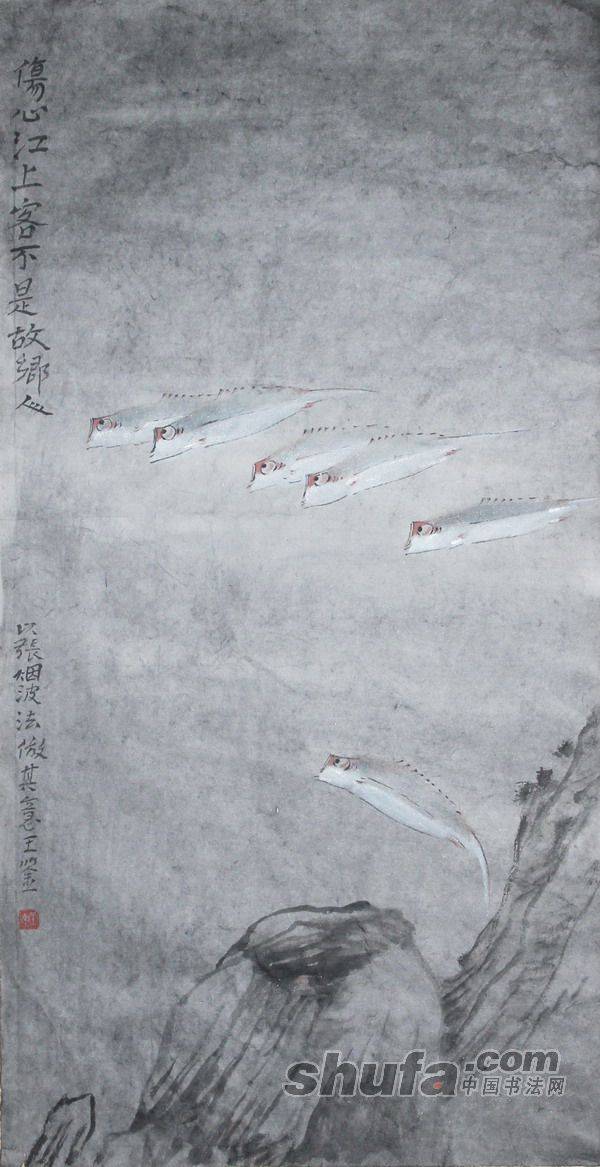 傷心江上客不是故鄉人
以張烟波法倣其意王鑒
shufa.com
中国书法网